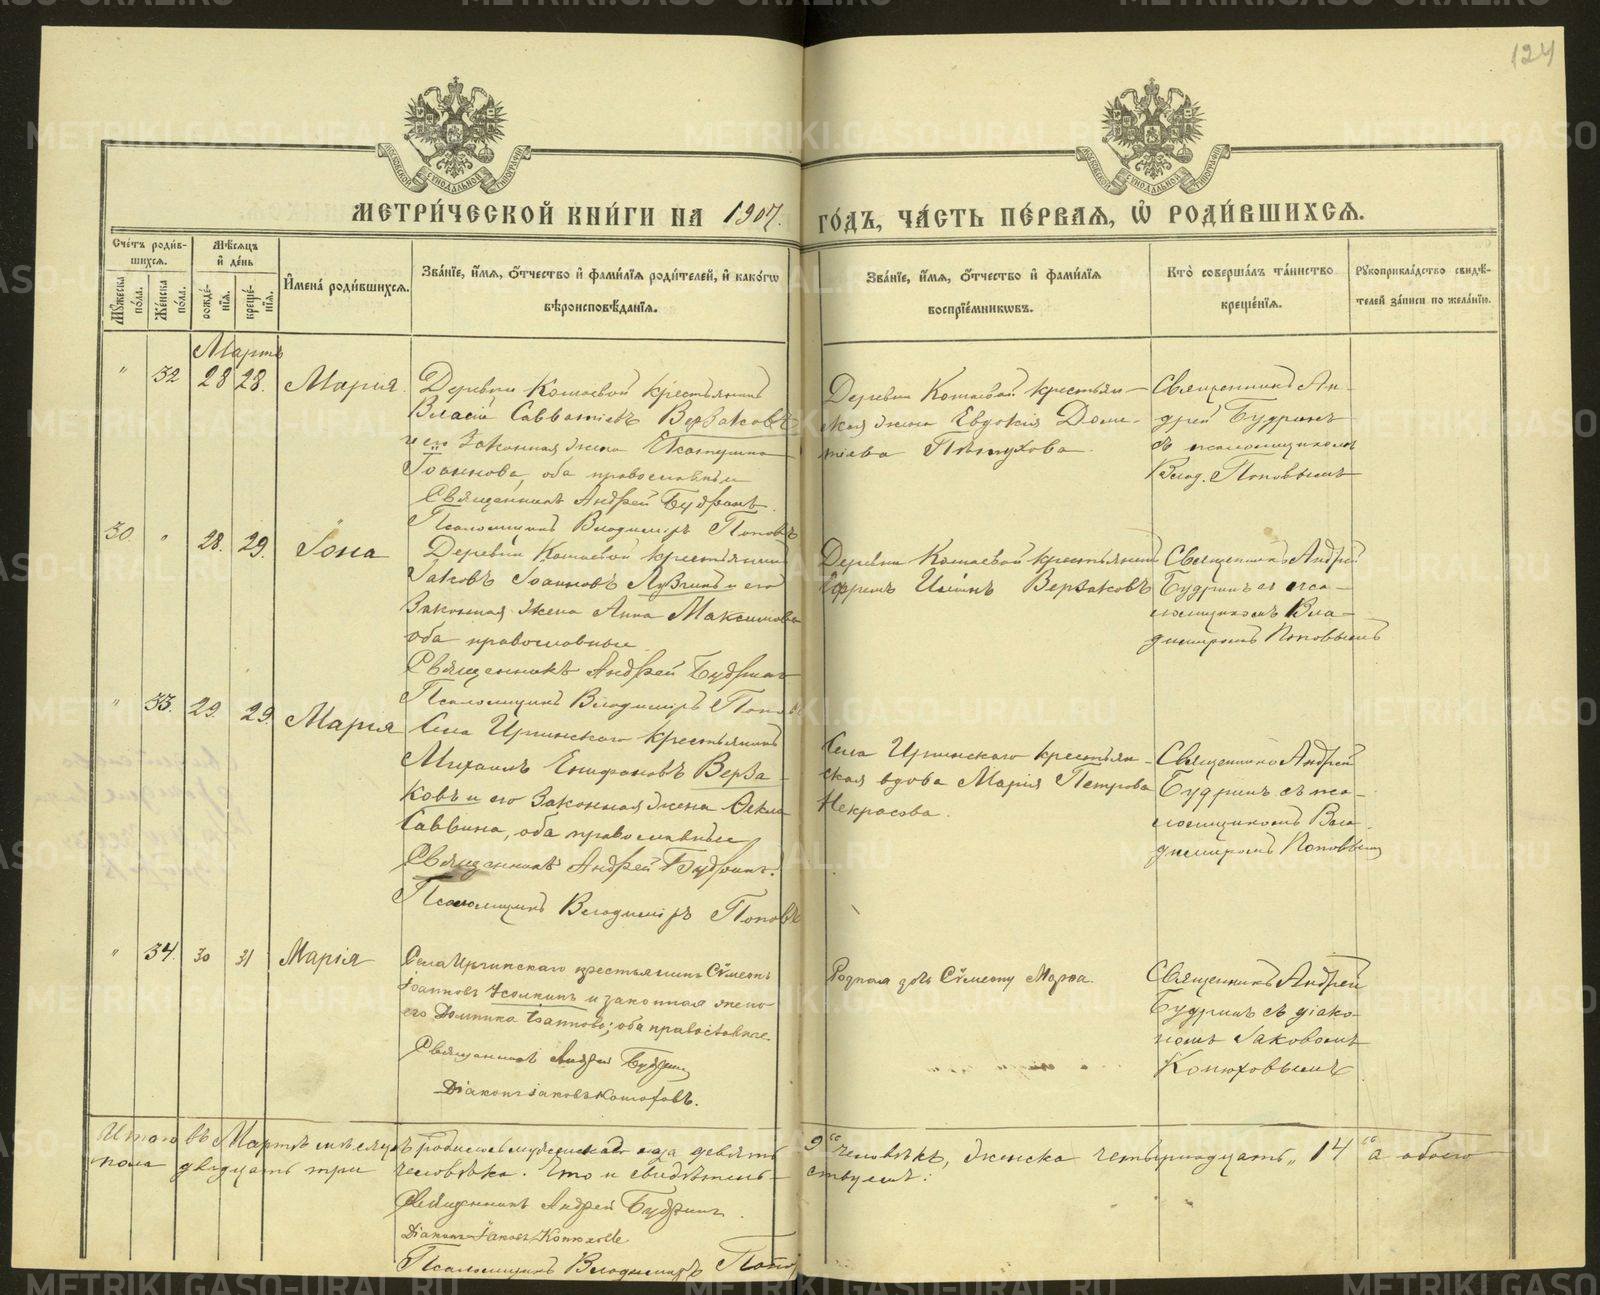 124
МОСКОВСКОЙ СУНОДАЛЬНОЙ ТИПОГРАФІИ
МОСКОВСКОЙ СУНОДАЛЬНОЙ ТИПОГРАФІИ
МЕТРИ́ЧЕСКОЙ КНИ́ГИ НА 1907. ГО́ДЪ, ЧА́СТЬ ПЕ́РВАЯ, Ѡ РОДИ́ВШИХСЯ.
Сче́тъ роди́вшихся.
Мꙋ́жеска по́ла.
Же́нска по́ла.
Мѣ́сяцъ и҆ де́нь
рожде́нїя.
креще́нїя.
И҆мена̀ роди́вшихся.
Зва́нїе, и҆́мя, ѻ҆́тчество и҆ фами́лїя роди́телей, и҆ како́гѡ
вѣроисповѣ́данїя.
Зва́нїе, и҆́мя, ѻ҆́тчество и҆ фами́лїя
воспрїе́мникѡвъ.
Кто̀ соверша́лъ та́инство
креще́нїя.
Рꙋкоприкла́дство свидѣ́-
телей за́писи по жела́нїю.
Мартъ
" 32 28 28. Марія.
Деревни Кошаевой крестьянинъ
Власій Савватіевъ Верзаковъ
и его законная жена Екатерина
Іоаннова, оба православные
Священникъ Андрей Будринъ.
Псаломщикъ Владиміръ Поповъ
Деревни Кошаевой крестьян-
ская жена Евдокія Доме-
тіева Пѣтухова.
Священникъ Ан-
дрей Будринъ
съ псаломщикомъ
Влад. Поповымъ
30. " 28. 29. Іона
Деревни Кошаевой крестьянинъ
Іаковъ Іоанновъ Лузгинъ и его
законная жена Анна Максимова
оба православные
Священникъ Андрей Будринъ
Псаломщикъ Владиміръ Поповъ
Деревни Кошаевой крестьянинъ
Ефремъ Ильинъ Верзаковъ
Священникъ Андрей
Будринъ съ пса-
ломщикомъ Вла-
диміромъ Поповымъ
" 33. 29. 29. Марія
Села Иргинскаго крестьянинъ
Михаилъ Епифановъ Верза-
ковъ и его законная жена Ѳекла
Саввина, оба православные
Священникъ Андрей Будринъ.
Псаломщикъ Владиміръ Поповъ
Села Иргинскаго крестьян-
ская вдова Марія Петрова
Некрасова.
Священникъ Андрей
Будринъ съ пса-
ломщикомъ Вла-
диміромъ Поповымъ
" 34. 30 31 Марія
Села Иргинскаго крестьянинъ Сѵмеонъ
Іоанновъ и законная жена
его Домника Іоаннова; оба православные.
Священникъ Андрей Будринъ
Діаконъ Іаковъ Конюховъ.
Родная дочь Сѵмеону Марѳа.
Священникъ Андрей
Будринъ съ діако-
номъ Іаковомъ
Конюховымъ
Итого въ Мартѣ мѣсяцѣ родилось мужеска пола девять 9 человѣкъ, женска четырнадцать 14 а обоего
пола двадцать три человѣка. Что и свидѣтель-
ствуемъ:
Священникъ Андрей Будринъ.
Діаконъ Іаковъ Конюховъ
Псаломщикъ Владиміръ Поповъ
METRIKI.GASO-URAL.RU